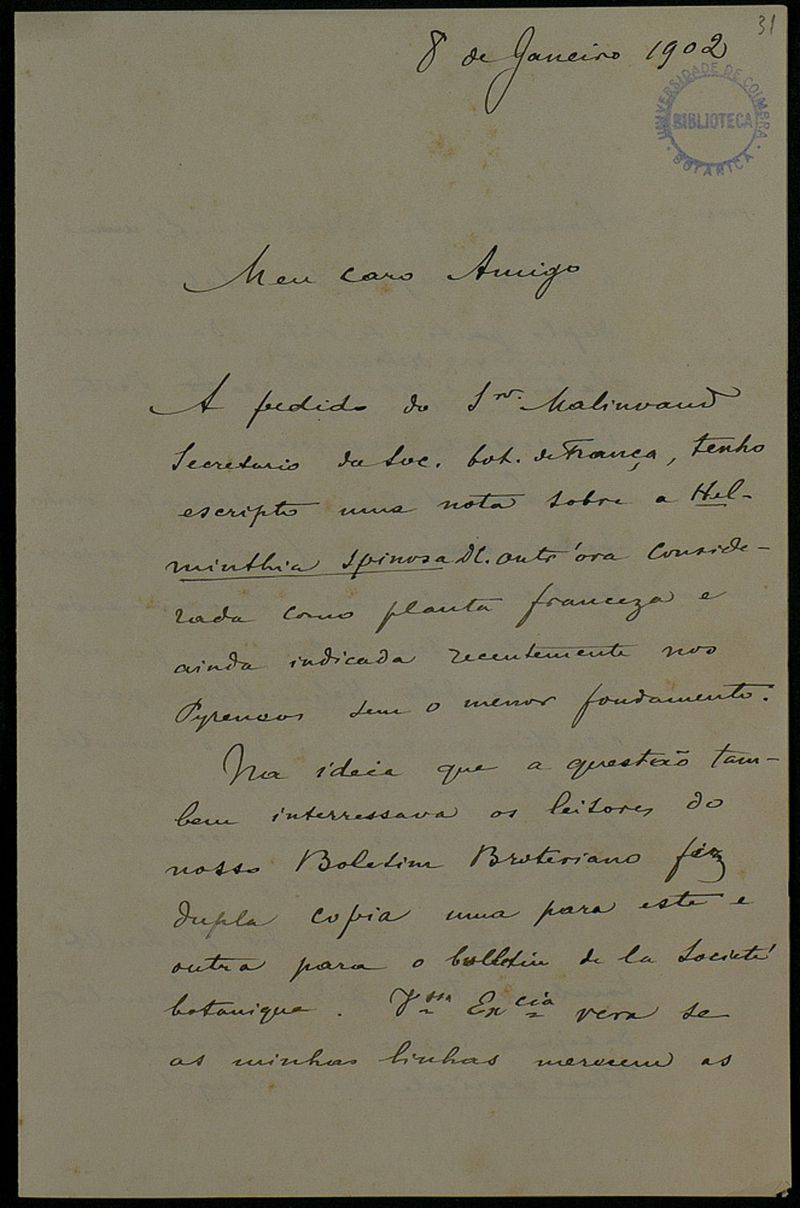 31
8 de Janeiro 1902
UNIVERSIDADE DE COIMBRA
BIBLIOTECA
BOTANICA
Meu caro Amigo
A pedido do Snr. Malinvaud
Secretario da Soc. bot. de França, tenho
escripto uma nota sobre a Hel-
minthia spinosa DC. outr'ora conside-
rada como planta franceza e
ainda indicada recentemente nos
Pyreneos sem o menor fondamento.
Na ideia que a questão tam-
bem interressava os leitores do
nosso Boletim Broteriano fiz
dupla copia uma para este e
outra para o bulletin de la Societé
botanique. Vssa Excia vera se
as minhas linhas merecem as